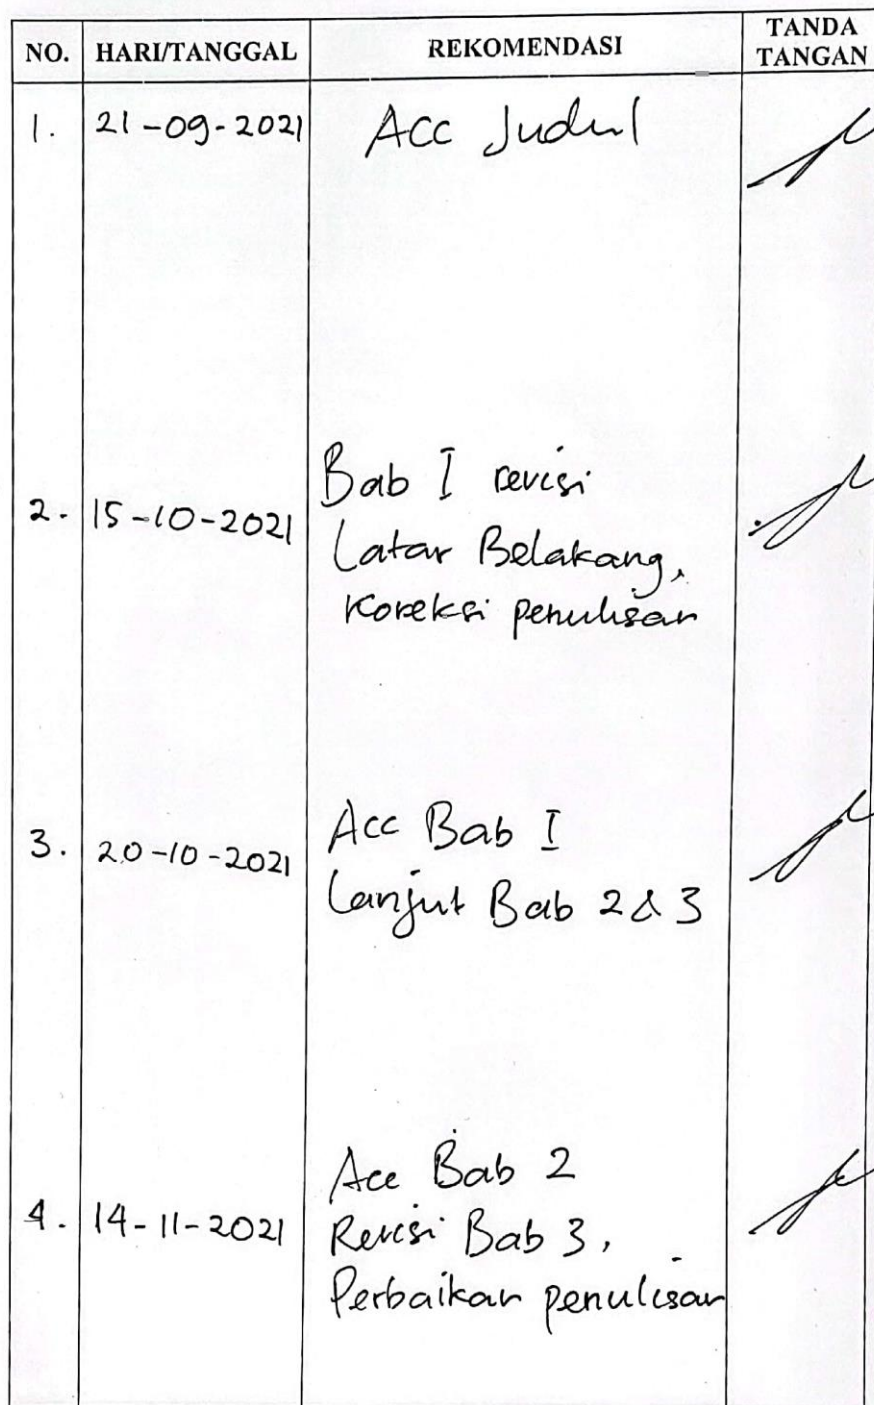 NO. HARI/TANGGAL REKOMENDASI TANDA TANGAN
1. 21-09-2021 Acc Judul
2. 15-10-2021 Bab I revisi
Latar Belakang,
Koreksi penulisan
3. 20-10-2021 Acc Bab I
Lanjut Bab 2 & 3
4. 14-11-2021 Acc Bab 2
Revisi Bab 3,
Perbaikan penulisan